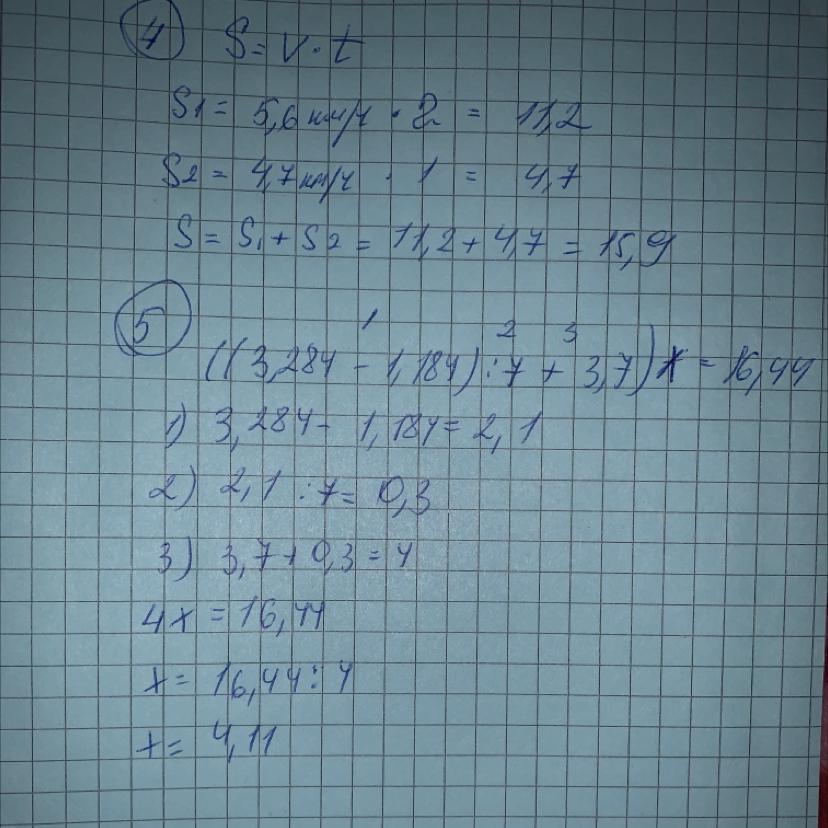 4 S = v · t
S1 = 5,6 км/ч · 2 = 11,2
S2 = 4,7 км/ч · 1 = 4,7
S = S1 + S2 = 11,2 + 4,7 = 15,9
5
1 2 3
((3,284 - 1,184) : 7 + 3,7) x = 16,44
1) 3,284 - 1,184 = 2,1
2) 2,1 : 7 = 0,3
3) 3,7 + 0,3 = 4
4x = 16,44
x = 16,44 : 4
x = 4,11